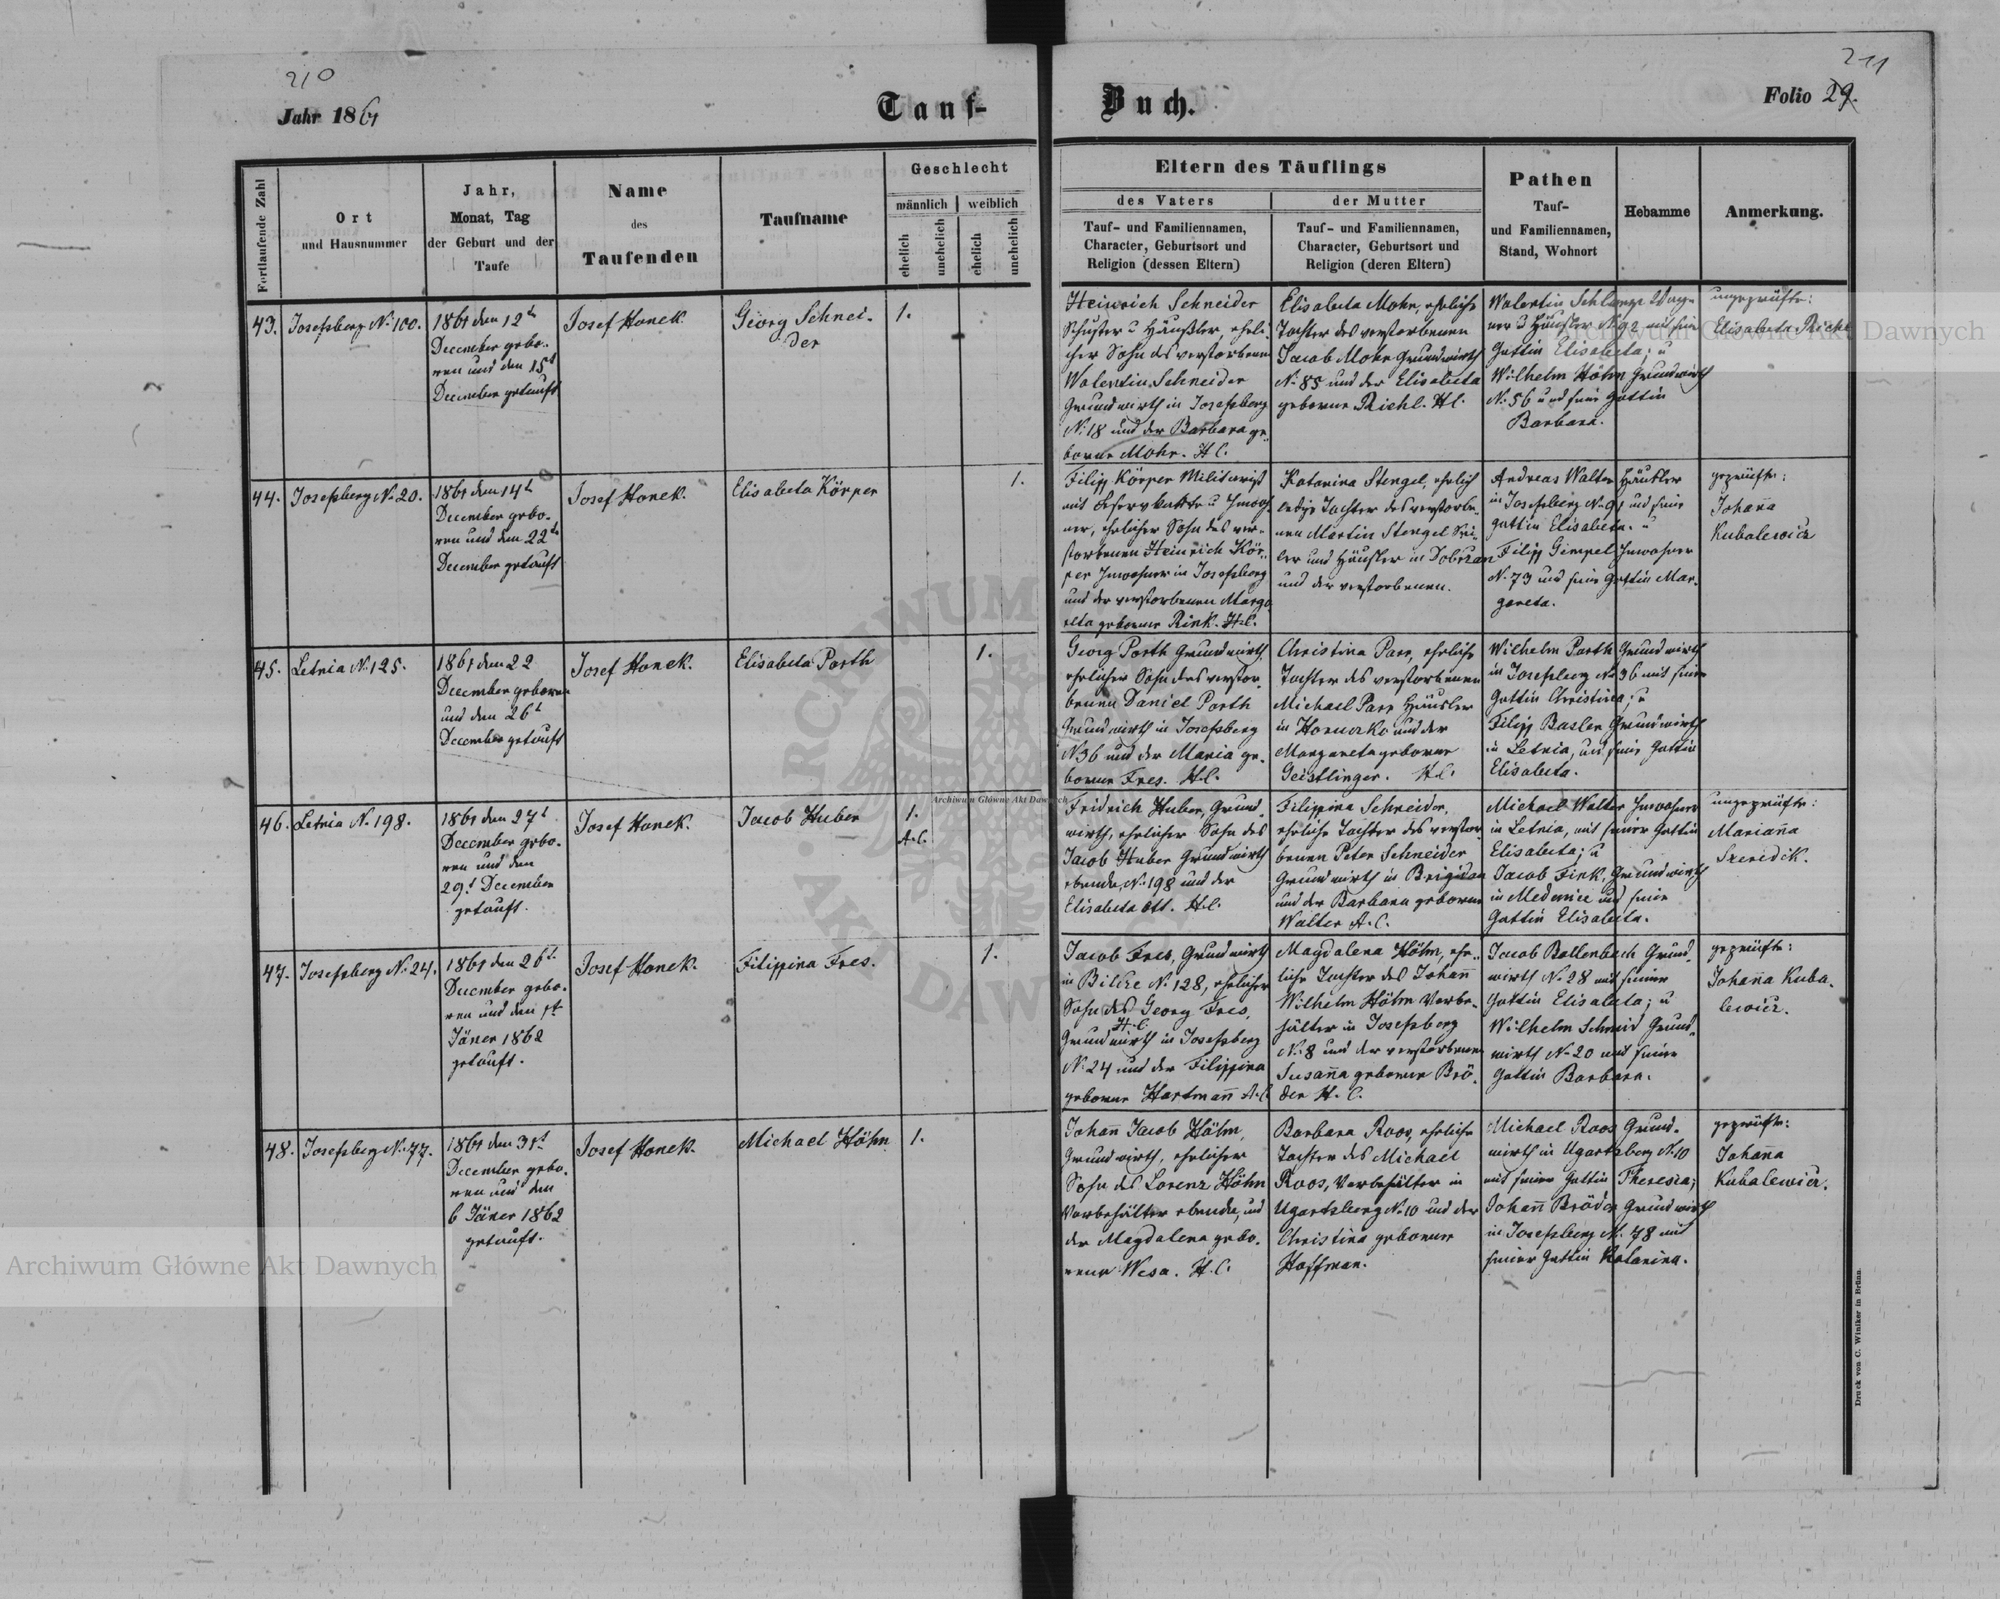 210
211
Jahr 1861
Tauf-
Buch.
Folio 29.
Fortlaufende Zahl
Ort
und Hausnummer
Jahr,
Monat, Tag
der Geburt und der
Taufe
Name
des
Taufenden
Taufname
Geschlecht
männlich
weiblich
ehelich
unehelich
ehelich
unehelich
Eltern des Täuflings
des Vaters
der Mutter
Tauf- und Familiennamen,
Character, Geburtsort und
Religion (dessen Eltern)
Tauf- und Familiennamen,
Character, Geburtsort und
Religion (deren Eltern)
Pathen
Tauf-
und Familiennamen,
Stand, Wohnort
Hebamme
Anmerkung.
43.
Josefsberg N. 100.
1861 den 12t
December gebo-
ren und den 15t
December getauft
Josef Hanek.
Georg Schnei-
der
1.
Heinrich Schneider
Schuster u Häußler, eheli-
cher Sohn des verstorbenen
Walentin Schneider
Grundwirth in Josefsberg
N. 18 und der Barbara ge-
borne Mohr. H.C.
Elisabeta Mohr, ehrliche
Tochter des verstorbenen
Jacob Mohr Grundwirth
N. 85 und der Elisabeta
geborne Riehl. H.C.
Walentin Schlamp Wag-
ner u Häusler N. 92 mit
Gattin Elisabeta; u
Wilhelm Höhn Grundwirth
N. 56 und seine Gattin
Barbara.
ungeprüfte:
Elisabeta Riehl
44.
Josefsberg N. 20.
1861 den 14t
December gebo-
ren und den 22t
December getauft
Josef Hanek.
Elisabeta Körper
1.
Filipp Körper Militärist
mit u Inwoh-
ner, ehelicher Sohn des ver-
storbenen Heinrich Kör-
per Inwohner in Josefsberg
und der verstorbenen Marga
reta geborne Rink. H.C.
Katarina Stengel, ehelich
ledige Tochter des verstorbe-
nen Martin Stengel Sei-
ler und Häusler in Dobrzan
und der verstorbenen.
Andreas Walter Häusler
in Josefsberg N. 91 und seine
gattin Elisabeta. u
Filipp Gimpel Inwohner
N. 73 und seine Gattin Mar-
gareta.
geprüfte:
Johanna
Kubalewicz
45.
Letnia N. 125.
1861 den 22
December geboren
und den 26t
December getauft
Josef Hanek.
Elisabeta Parth
1.
Georg Parth Grundwirth,
ehelicher Sohn des verstor-
benen Daniel Parth
Grundwirth in Josefsberg
N 36 und der Maria ge-
borne Fres. H.C.
Christina Parr, eheliche
Tochter des verstorbenen
Michael Parr Häusler
in Horucko und der
Margareta geborne
Geistlinger. H.C.
Wilhelm Parth Grundwirth
in Josefsberg N. 36 mit seine
Gattin Christina; u
Filipp Basler Grundwirth
in Letnia, und seine Gattin
Elisabeta.
46.
Letnia N. 198.
1861 den 27t
December gebo-
ren und den
29t December
getauft.
Josef Hanek.
Jacob Huber
1.
A.C.
Fridrich Huber, Grund-
wirth, ehelicher Sohn des
Jacob Huber Grundwirth
ebenda, N. 198 und der
Elisabeta Ott. H.C.
Filippina Schneider,
eheliche Tochter des verstor-
benen Peter Schneider
Grundwirth in Brigidau
und der Barbara geborne
Walter A.C.
Michael Walter Inwohner
in Letnia, mit seiner Gattin
Elisabeta; u
Jacob Fink, Grundwirth
in Medenice und seine
Gattin Elisabeta.
ungeprüfte:
Marianna
Szeredik.
47.
Josefsberg N. 24.
1861 den 26t
December gebo-
ren und den 1t
Jäner 1862
getauft.
Josef Hanek.
Filippina Fres.
1.
Jacob Fres, Grundwirth
in Bilcze N. 128, ehelicher
Sohn des Georg Fres,
H.C.
Grundwirth in Josefsberg
N. 24 und der Filippina
geborne Hartmann A.C.
Magdalena Höhn, ehe-
liche Tochter des Johann
Wilhelm Höhn Vorbe-
hälter in Josefsberg
N. 8 und der verstorbenen
Susanna geborne Brö-
der H.C.
Jacob Bollenbach Grund-
wirth N. 28 mit seiner
Gattin Elisabeta; u
Wilhelm Schmid Grund-
wirth N. 20 mit seine
Gattin Barbara.
geprüfte:
Johanna Kuba-
lewicz.
48.
Josefsberg N. 77.
1861 den 31t
December gebo-
ren und den
6 Jäner 1862
getauft.
Josef Hanek.
Michael Höhn
1.
Johann Jacob Höhn,
Grundwirth, ehelicher
Sohn des Lorenz Höhn
Vorbehälter ebenda, und
der Magdalena gebo-
rene Wesa. H.C.
Barbara Roos, eheliche
Tochter des Michael
Roos, Vorbehälter in
Ugartsberg N. 10 und der
Christina geborne
Hoffman.
Michael Roos Grund-
wirth in Ugartsberg N. 10
mit seiner Gattin Theresia;
Johann Bröder Grundwirth
in Josefsberg N. 78 mit
seiner Gattin Katarina.
geprüfte:
Johanna
Kubalewicz.
Druck von C. Winiker in Brünn.
Archiwum Główne Akt Dawnych
Archiwum Główne Akt Dawnych
Archiwum Główne Akt Dawnych
ARCHIWUM
AKT DAW